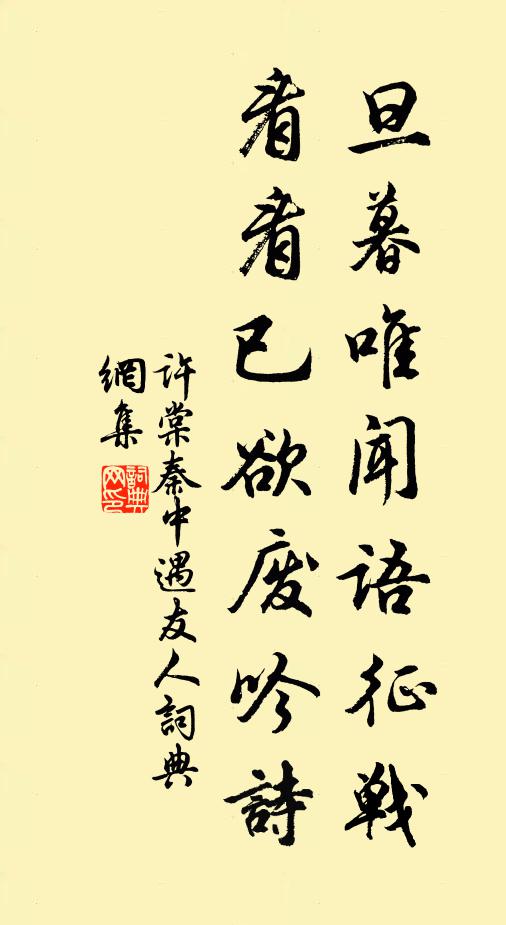 旦暮唯聞語征戰
看看已欲废吟詩
許棠秦中遇友人詞典
網集
詞典网印